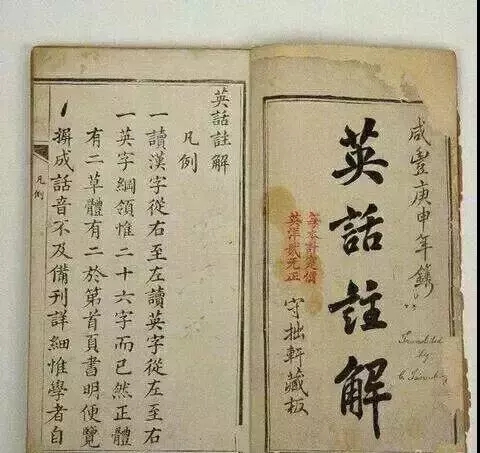 咸豐庚申年鐫
英話註解
守拙軒藏板
每本計價
英洋貳元正
Translated
by
英話註解
凡例
一讀漢字從右至左讀英字從左至右
一英字綱領惟二十六字而已然正體
有二草體有二於第首頁書明便覽
撰成話音不及備刊詳細惟學者自
凡例